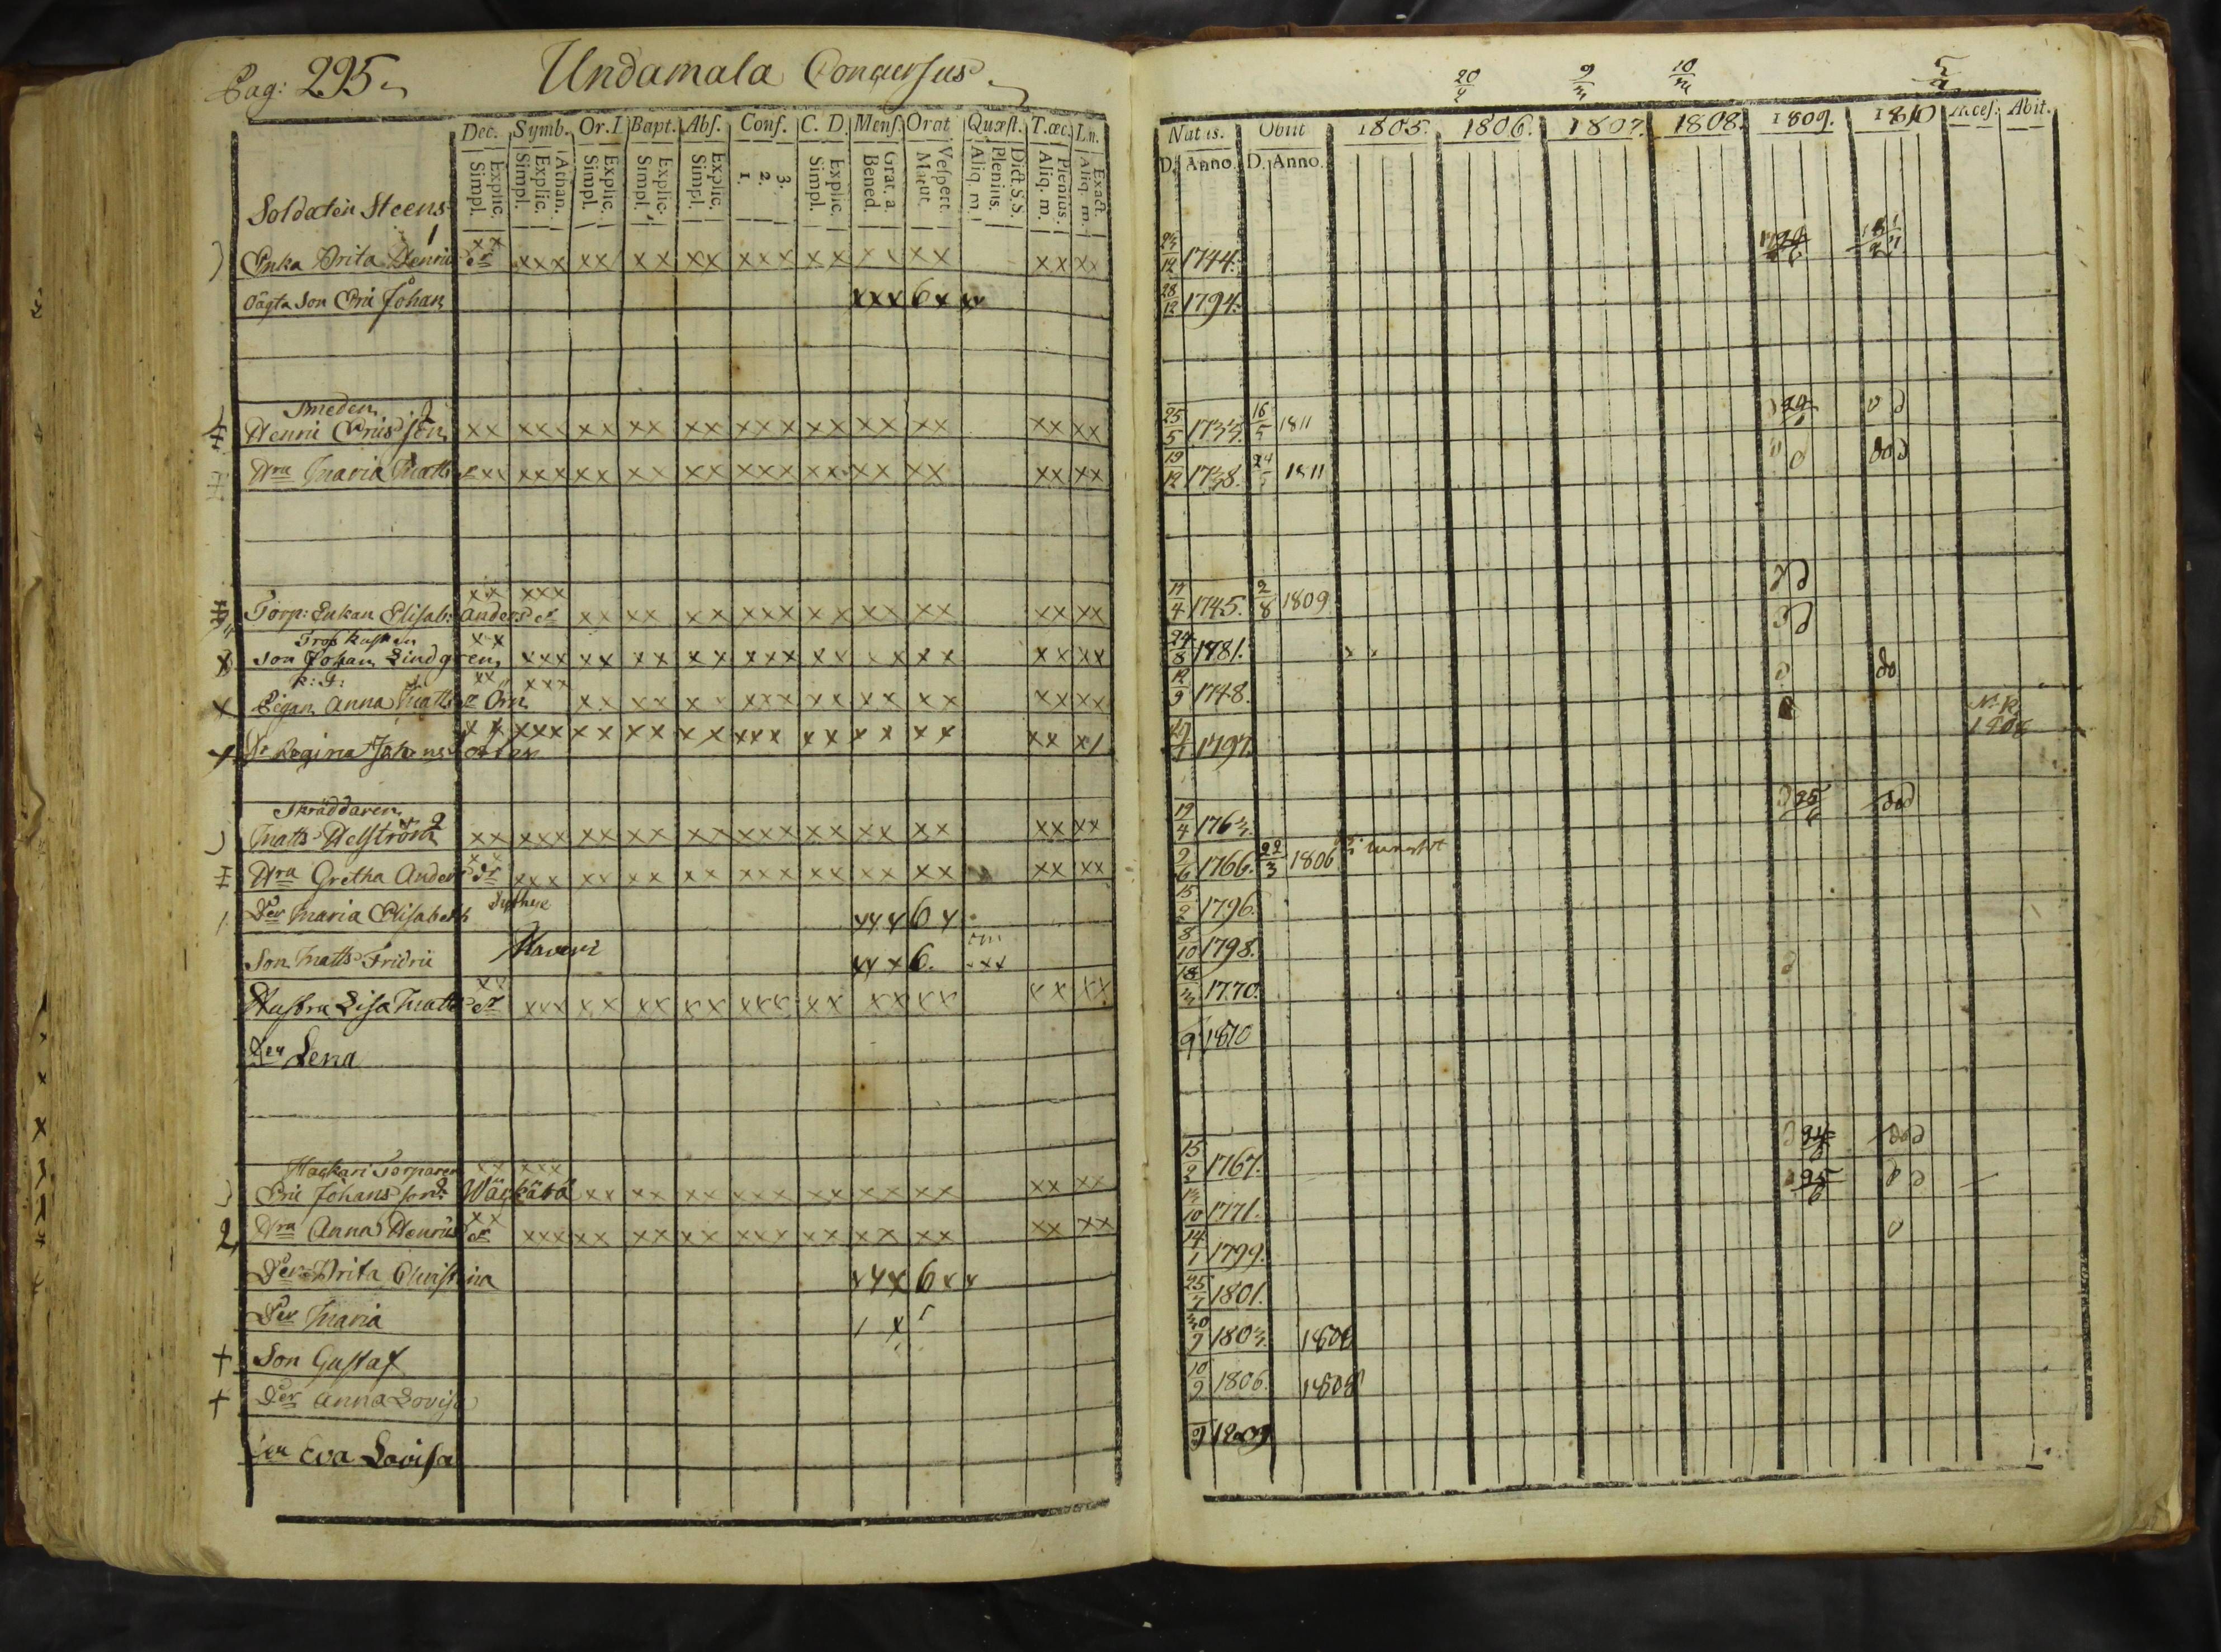 Pag: 295 Undamala Concursus
20/4 9/3 10/3
Dec. Symb. Or. I Bapt. Abs. Conf. C. D. Mens. Orat Quæst. T. œc. Ln. Natis. Obiit 1805. 1806. 1807. 1808. 1809. 1810 Acces. Abit.
Explic. Simpl. Athan. Explic. Simpl. Explic. Simpl. Explic. Simpl. Explic. Simpl. 3. 2. 1. Explic. Simpl. Grat. a. Bened. Vespert. Matut. Dict. S.S. Plenius. Aliq. m. Plenius. Aliq. m. Exact. Aliq. m. D. Anno. D. Anno.
Soldaten Steens
Enka Brita Henric xx xxx xx xx xx xxx xx xx xx xx xx 1744.
Oägta Son Eric Johan xxx 6 x 28/12 1794.
Smeden
Henric Ericsson xx xxx xx xx xx xxx xx xx xx xx xx 25/5 1733. 16/5 1811
Hru Maria Matts xx xxx xx xx xx xxx xx xx xx xx xx 19/12 1738. 24 1811
xx xxx
Torp: Enkan Elisab: Anders xx xx xx xxx xx xx xx xx xx 4 1745. 2/8 1809
xx
Son Johan Lindgren xxx xx xx xx xxx xx xx xx xx xx 24/8 1781. x x
xx xxx
Pigan Anna Matts xx xx xx xxx xx xx xx xx xx 12/9 1748.
Regina Johans xx xxx xx xx xx xxx xx xx xx xx x/ 1797. 1808
Skräddaren
Matts Helström xx xxx xx xx xx xxx xx xx xx xx xx 19/4 1763.
Hru Gretha Anders xx xxx xx xx xx xxx xx xx xx xx xx 2/6 1766. 22/3 1806
Der Maria Elisabeth xxx 6 x 15/2 1796.
Son Matts Fridric xx x 6. 8/10 1798.
Hustru Lisa Matts xx xxx xx xx xx xxx xx xx xx xx xx 18/3 1770.
Der Lena 9 1810
Hackari Torparen xx xxx
Eric Johansson xx xx xx xxx xx xx xx xx xx 15/2 1767.
Hru Anna Henrics xx xxx xx xx xx xxx xx xx xx xx xx 13/10 1771.
Der Brita Christina xxx 6 xx 14/1 1799.
Der Maria 25/7 1801.
Son Gustaf 30/9 1803. 1808
Der Anna Lovisa 10/9 1806. 1808
Der Eva Lovisa 9 1809